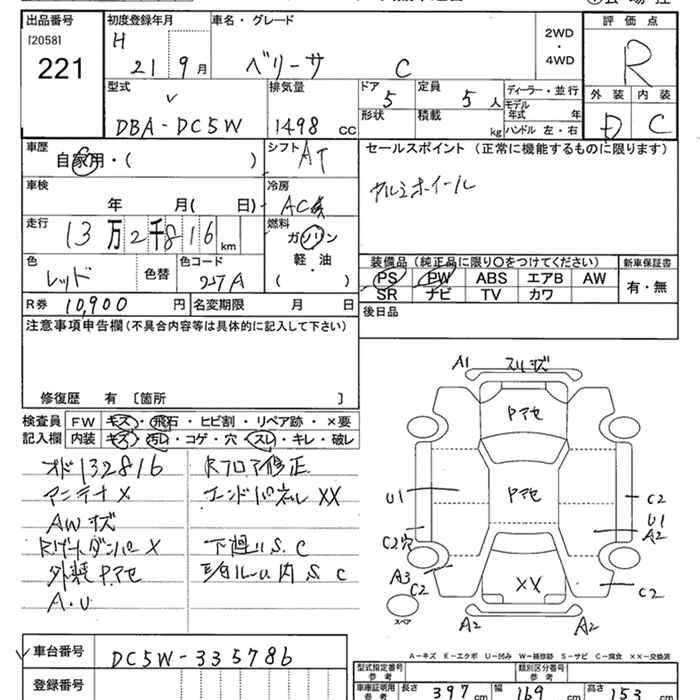 出品番号 初度登録年月 車名・グレード 2WD ・ 4WD 評価点
[2058] 221
H 21 9月 ベリーサ C R
型式 排気量 ドア 5 定員 5人 ディーラー・並行 外装 内装
DBA-DC5W 1498 cc 形状 積載 kg モデル年式 年 ハンドル 左・右 D C
車歴 自家用・( ) シフト AT セールスポイント (正常に機能するものに限ります)
車検 年 月( 日) 冷房 AC アルミホイール
走行 13万2千816 km 燃料 ガソリン 軽・油 ( )
色 レッド 色替 色コード 27A
装備品 (純正品に限り○をつけてください) 新車保証書
PS PW ABS エアB AW 有・無
SR ナビ TV カワ
R券 10,900円 名変期限 月 日 後日品
注意事項申告欄 (不具合内容等は具体的に記入して下さい)
修復歴 有 〔箇所 〕
検査員 FW キズ・飛石・ヒビ割・リペア跡・×要
記入欄 内装 キズ・汚レ・コゲ・穴・スレ・キレ・破レ
オド132816 Rフロア修正
アンテナX エンドパネルXX
AWキズ
RゲートダンパX 下廻りS.C
外装P.アセ 内S C
A.U
A1 スリキズ
Pアセ
Pアセ
U1 C2
U1
A2
C2穴
A3
C2 XX C2
スペア A2 A2
A-キズ E-エクボ U-凹み W-補修跡 S-サビ C-腐食 ××-交換済
車台番号 DC5W-335786
登録番号
型式指定番号 参考 類別区分番号 参考
車庫証明用 参考 長さ 397cm 幅 169cm 高さ 153cm